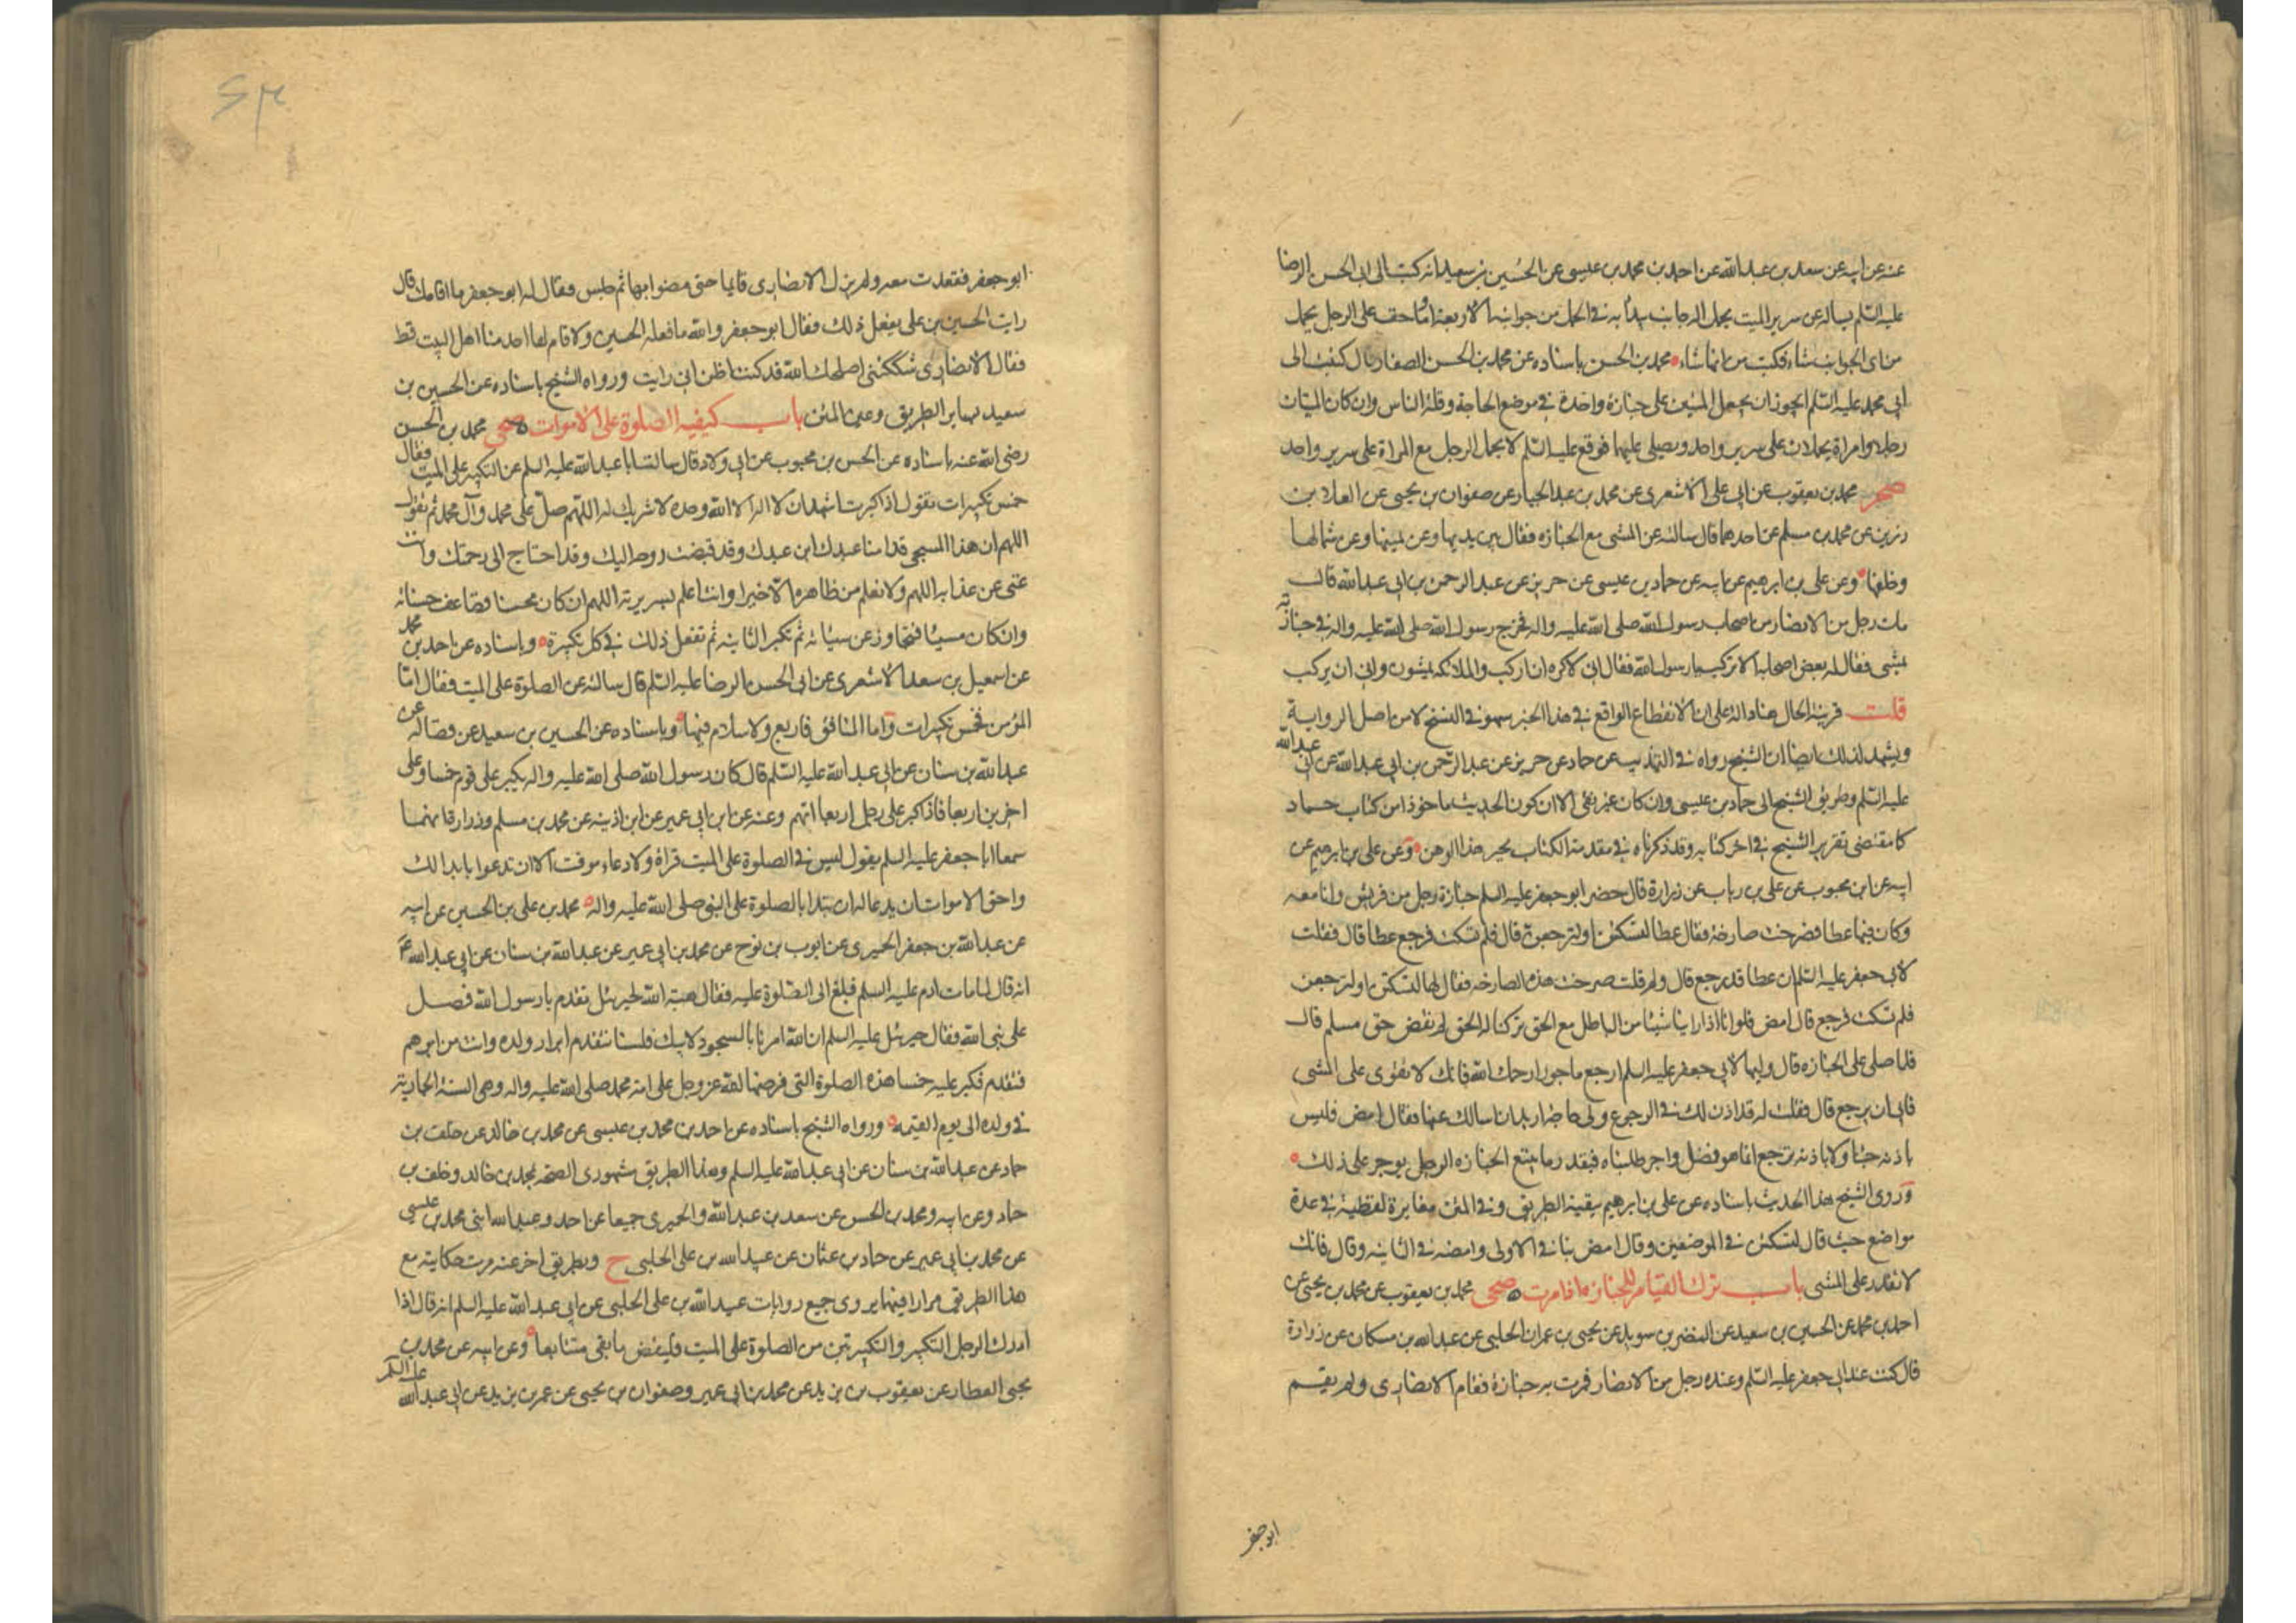 عنه عن ابيه عن سعد بن عبد الله عن احمد بن محمد بن عيسى عن الحسين بن سعيد انه كتب الى ابى الحسن الرضا
عليه السّلم يساله عن سرير الميت يحمل اله جانب يبدأ به فى الحمل من جوانبه الاربعة او ما خف على الرجل يحمل
من اى الجوانب شاء فكتب من ايها شاء محمد بن الحسن باسناده عن محمد بن الحسن الصفار قال كتبت الى
ابى محمد عليه السّلم ايجوز ان يجعل الميتين على جنازة واحدة فى موضع الحاجة وقلة الناس وان كان الميتان
رجلا وامراة يحملان على سرير واحد ويصلى عليهما فوقع عليه السّلم لا يحمل الرجل مع المراة على سرير واحد
صحر محمد بن يعقوب عن ابى على الاشعرى عن محمد بن عبد الجبار عن صفوان بن يحيى عن العلاء بن
رزين عن محمد بن مسلم عن احدهما قال سالته عن المشى مع الجنازه فقال بين يديها وعن يمينها وعن شمالها
وخلفها وعن على بن ابرهيم عن ابيه عن حماد بن عيسى عن حريز عن عبد الرحمن بن ابى عبد الله قال
مات رجل من الانصار من اصحاب رسول الله صلى الله عليه واله فخرج رسول الله صلى الله عليه واله فى جنازته
يمشى فقال له بعض اصحابه الا تركب يا رسول الله فقال انى لاكره ان اركب والملائكه يمشون وابى ان يركب
قلت قرينة الحال هنا دالة على ان الانقطاع الواقع فى هذا الخبر سهو فى النسخ لا من اصل الرواية
ويشهد لذلك ايضا ان الشيخ رواه فى التهذيب عن حماد عن حريز عن عبد الرّحمن بن ابى عبد الله عن ابى عبد الله
عليه السّلم وطريق الشيخ الى حماد بن عيسى وان كان غير نقى الا ان كون الحديث ماخوذا من كتاب حماد
كما مقتضى تقرير الشيخ فى اخر كتابه وقد ذكرناه فى مقدمة الكتاب يجبر هذا الوهن وعن على بن ابرهيم عن
ابيه عن ابن محبوب عن على بن رياب عن زرارة قال حضر ابو جعفر عليه السلم جنازة رجل من قريش وانا معه
وكان فيها عطا فصرخت صارخة فقال عطا لتسكتن او لنرجعن قال فلم تسكت فرجع عطا قال فقلت
لابى جعفر عليه السّلم ان عطا قد رجع قال ولم قلت صرخت هذه الصارخه فقال لها لتسكتن او لنرجعن
فلم تسكت فرجع قال امض فلو انا اذا راينا شيئا من الباطل مع الحق تركنا له الحق لم نقض حق مسلم قال
فلما صلى على الجنازه قال وليها لابى جعفر عليه السلم ارجع ماجورا رحمك الله فانك لا تقوى على المشى
فابى ان يرجع قال فقلت له قد اذن لك فى الرجوع ولى حاجة اريد ان اسالك عنها فقال امض فليس
باذنه جئنا ولا باذنه نرجع انما هو فضل واجر طلبناه فبقدر ما يتبع الجنازه الرجل يوجر على ذلك
وروى الشيخ هذا الحديث باسناده عن على بن ابرهيم بقية الطريق وفى المتن مغايرة لفظية فى عدة
مواضع حيث قال لتسكتن فى الموضعين وقال امض بنا فى الاولى وامضه فى الثانيه وقال فانك
لا تقدر على المشى باب ترك القيام للجنازة اذا مرت صحى محمد بن يعقوب عن محمد بن يحيى عن
احمد بن محمد عن الحسين بن سعيد عن النضر بن سويد عن يحيى بن عمران الحلبى عن عبد الله بن مسكان عن زرارة
قال كنت عند ابى جعفر عليه السّلم وعنده رجل من الانصار فمرت به جنازة فقام الانصارى ولم يقم
ابو جعفر
ابو جعفر فقعدت معه ولم يزل الانصارى قايما حتى مضوا بها ثم جلس فقال له ابو جعفر ما اقامك قال
رايت الحسين بن على يفعل ذلك فقال ابو جعفر والله ما فعله الحسين ولا قام لها احد منا اهل البيت قط
فقال الانصارى شككتنى اصلحك الله قد كنت اظن انى رايت ورواه الشيخ باسناده عن الحسين بن
سعيد بساير الطريق وعين المتن باب كيفية الصلوة على الاموات صحى محمد بن الحسن
رضى الله عنه باسناده عن الحسن بن محبوب عن ابى ولاد قال سالت ابا عبد الله عليه السلم عن التكبير على الميت فقال
خمس تكبيرات تقول اذا كبرت اشهد ان لا اله الا الله وحده لا شريك له اللهم صل على محمد وآل محمد ثم تقول
اللهم ان هذا المسجى قدامنا عبدك ابن عبدك وقد قبضت روحه اليك وقد احتاج الى رحمتك وانت
غنى عن عذابه اللهم ولا نعلم من ظاهره الا خيرا وانت اعلم بسريرته اللهم ان كان محسنا فضاعف حسناته
وان كان مسيئا فتجاوز عن سيئاته ثم تكبر الثانيه ثم تفعل ذلك فى كل تكبيرة وباسناده عن احمد بن محمد
عن اسمعيل بن سعد الاشعرى عن ابى الحسن الرضا عليه السّلم قال سالته عن الصلوة على الميت فقال امّا
المؤمن فخمس تكبيرات واما المنافق فاربع ولا سلام فيها وباسناده عن الحسين بن سعيد عن فضاله عن
عبد الله بن سنان عن ابى عبد الله عليه السّلم قال كان رسول الله صلى الله عليه واله يكبر على قوم خمسا وعلى
اخرين اربعا فاذا كبر على رجل اربعا اتهم وعنه عن ابن ابى عمير عن ابن اذينه عن محمد بن مسلم وزرارة انهما
سمعا ابا جعفر عليه السلم يقول ليس فى الصلوة على الميت قراة ولا دعاء موقت الا ان تدعوا بما بدا لك
واحق الاموات ان يدعا له ان تبدا بالصلوة على النبى صلى الله عليه واله محمد بن على بن الحسين عن ابيه
عن عبد الله بن جعفر الحميرى عن ايوب بن نوح عن محمد بن ابى عمير عن عبد الله بن سنان عن ابى عبد الله ع
انه قال لما مات ادم عليه السلم فبلغ الى الصّلوة عليه فقال هبة الله لجبرئيل تقدم يا رسول الله فصل
على نبى الله فقال جبرئيل عليه السلم ان الله امرنا بالسجود لابيك فلسنا نتقدم ابرار ولده وانت من ابرهم
فتقدم فكبر عليه خمسا هذه الصلوة التى فرضها الله عز وجل على امة محمد صلى الله عليه واله وهى السنة الجارية
فى ولده الى يوم القيمه ورواه الشيخ باسناده عن احمد بن محمد بن عيسى عن محمد بن خالد عن خلف بن
حماد عن عبد الله بن سنان عن ابى عبد الله عليه السلم وهذا الطريق مشهورى الصحه لمحمد بن خالد وخلف بن
حماد وعن ابيه ومحمد بن الحسن عن سعد بن عبد الله والحميرى جميعا عن احمد وعبد الله ابنى محمد بن عيسى
عن محمد بن ابى عمير عن حماد بن عثمان عن عبيد الله بن على الحلبى ح وبطريق اخر عنه مرت حكايته مع
هذا الطريق مرارا فيما يروى جميع روايات عبيد الله بن على الحلبى عن ابى عبد الله عليه السلم انه قال اذا
ادرك الرجل التكبير والتكبيرتين من الصلوة على الميت فليقض ما بقى متتابعا وعن ابيه عن محمد بن
يحيى العطار عن يعقوب بن يزيد عن محمد بن ابى عمير وصفوان بن يحيى عن عمر بن يزيد عن ابى عبد الله عليه السلم